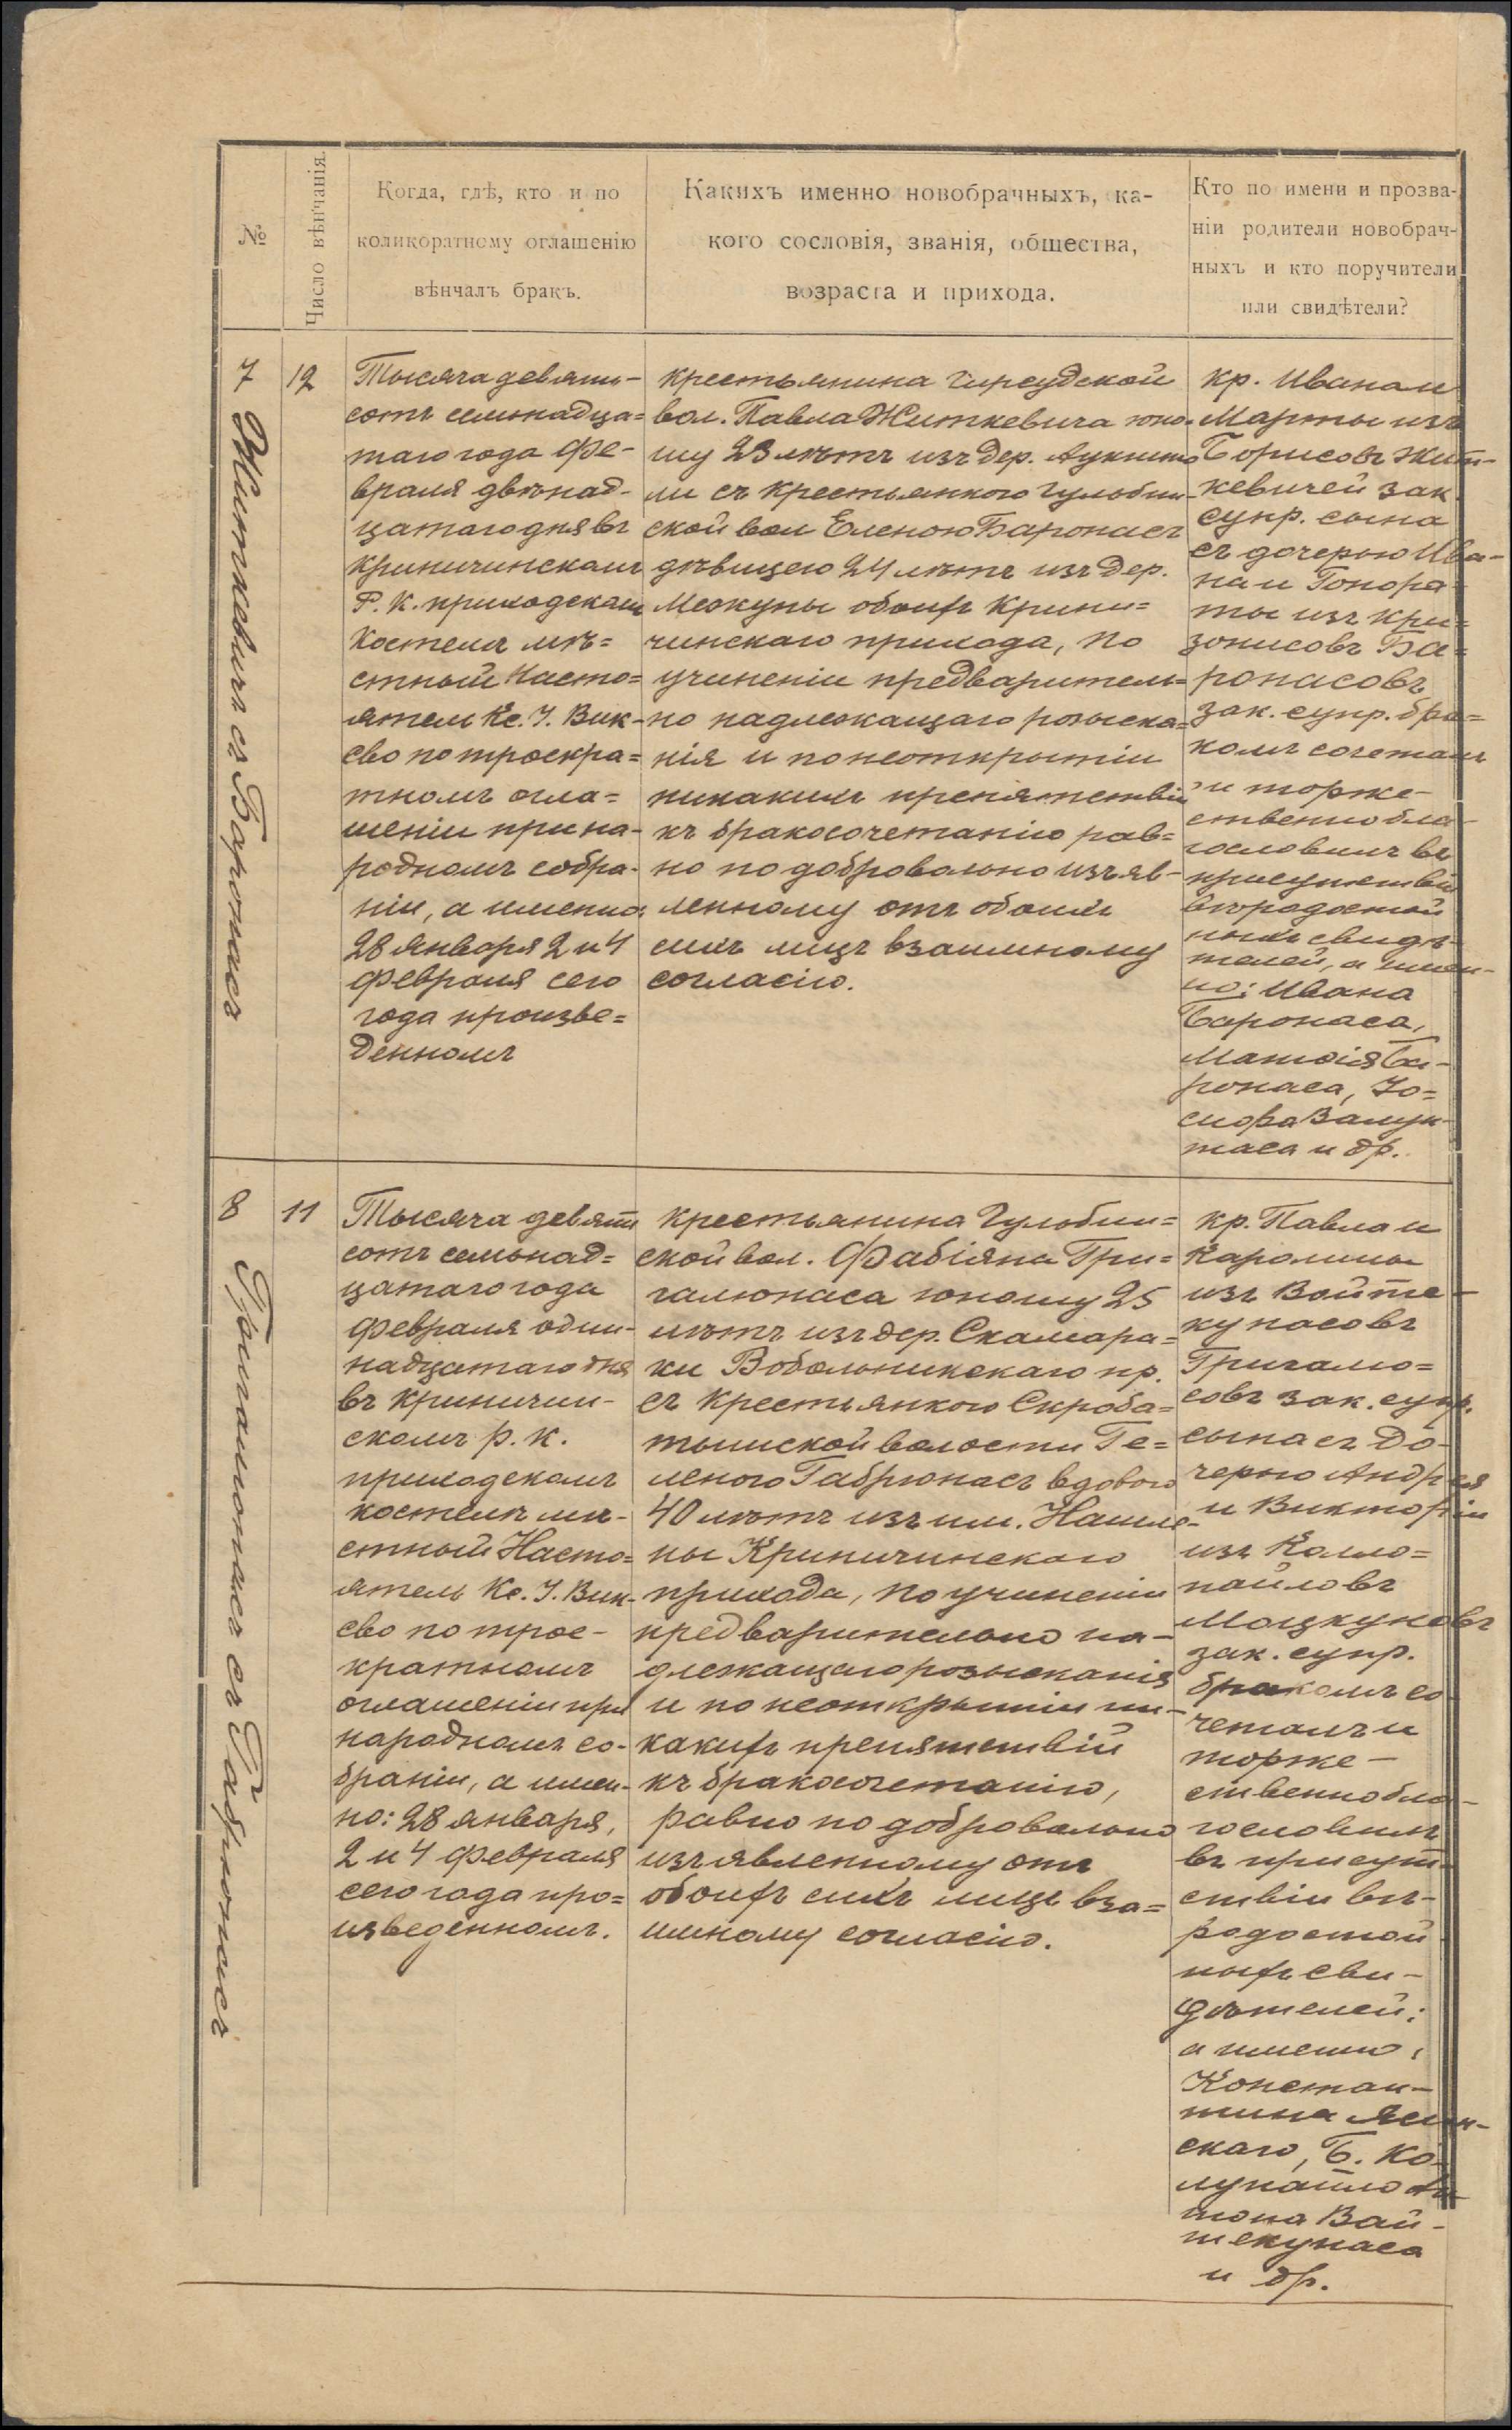 №
Число вѣнчанія.
Когда, гдѣ, кто и по
коликоратному оглашенію
вѣнчалъ бракъ.
Какихъ именно новобрачныхъ, ка-
кого сословія, званія, общества,
возраста и прихода.
Кто по имени и прозва-
ніи родители новобрач-
ныхъ и кто поручители
или свидѣтели?
7
Житкевичъ съ Баронасъ
12
Тысяча девять-
сотъ семьнадца=
таго года Фе-
враля двѣнад-
цатаго дня въ
Криничинскомъ
Р. К. приходскомъ
костелѣ мѣ=
стный Насто=
ятель Кс. І. Вик-
сво по троекра=
тномъ огла=
шеніи при на-
родномъ собра-
ніи, а именно
28 Января 2 и 4
Февраля сего
года произве=
денномъ
крестьянина Гирсудской
вол. Павла Житкевича юно-
шу 23 лѣтъ изъ дер.
ли съ крестьянкою Гульбин-
ской вол Еленою Баронасъ
дѣвицею 24 лѣтъ изъ дер.
Межуны обоихъ Крини=
чинскаго прихода, по
учиненіи предваритель=
но надлежащаго розыска=
нія и по неоткрытіи
никакихъ препятствій
къ бракосочетанію рав=
но по добровольно изъяв-
ленному отъ обоихъ
сихъ лицъ взаимному
согласію.
кр. Ивана и
Марты изъ
Борисовъ Жит-
кевичей зак
супр. сына
съ дочерью Ива-
на и Гонора=
ты изъ Кри=
зонисовъ Ба=
ронасовъ
зак. супр. бра=
комъ сочеталъ
и торже-
ственно бла-
гословилъ въ
присутствіи
вѣродостой
ныхъ свидѣ-
телей, а имен-
но: Ивана
Баронаса,
Матвія Ба-
ронаса, Іо=
сифа Залук-
таса и др.
8
Григалюнасъ съ Габрюнасъ
11
Тысяча девять
сотъ семьнад=
цатаго года
Февраля один-
надцатаго дня
въ Криничин-
скомъ р. к.
приходскомъ
костелѣ мѣ-
стный Насто=
ятель Кс. І. Вик-
сво по трое-
кратномъ
оглашеніи при
народномъ со-
браніи, а имен-
но: 28 января,
2 и 4 Февраля
сего года про=
изведенномъ.
крестьянина Гульбин=
ской вол. Фабіяна Гри=
галюнаса юношу 25
лѣтъ изъ дер. Скамара=
ки Вобольникскаго пр.
съ крестьянкою Скроба=
тышской волости Ге=
леною Габрюнасъ вдовою
40 лѣтъ изъ им. Нашле-
ны Криничинскаго
прихода, по учиненіи
предварительно на-
длежащаго розысканія
и по неоткрытіи ни-
какихъ препятствій
къ бракосочетанію,
равно по добровольно
изъявленному отъ
обоихъ сихъ лицъ вза=
имному согласію.
кр. Павла и
Каролины
изъ Войте-
кунасовъ
Григалю=
совъ зак. супр.
сына съ до-
черью Андрея
и Викторіи
изъ Колло=
пайловъ
Моцкуновъ
зак. супр.
бракомъ со
четалъ и
торже-
ственно бла-
гословилъ
въ присут-
ствіи вѣ-
родостой
ныхъ сви-
дѣтелей:
а именно:
Констан-
тина Ясин-
скаго, Б. Ко-
лупайло Ан
тона Вай-
текунаса
и др.